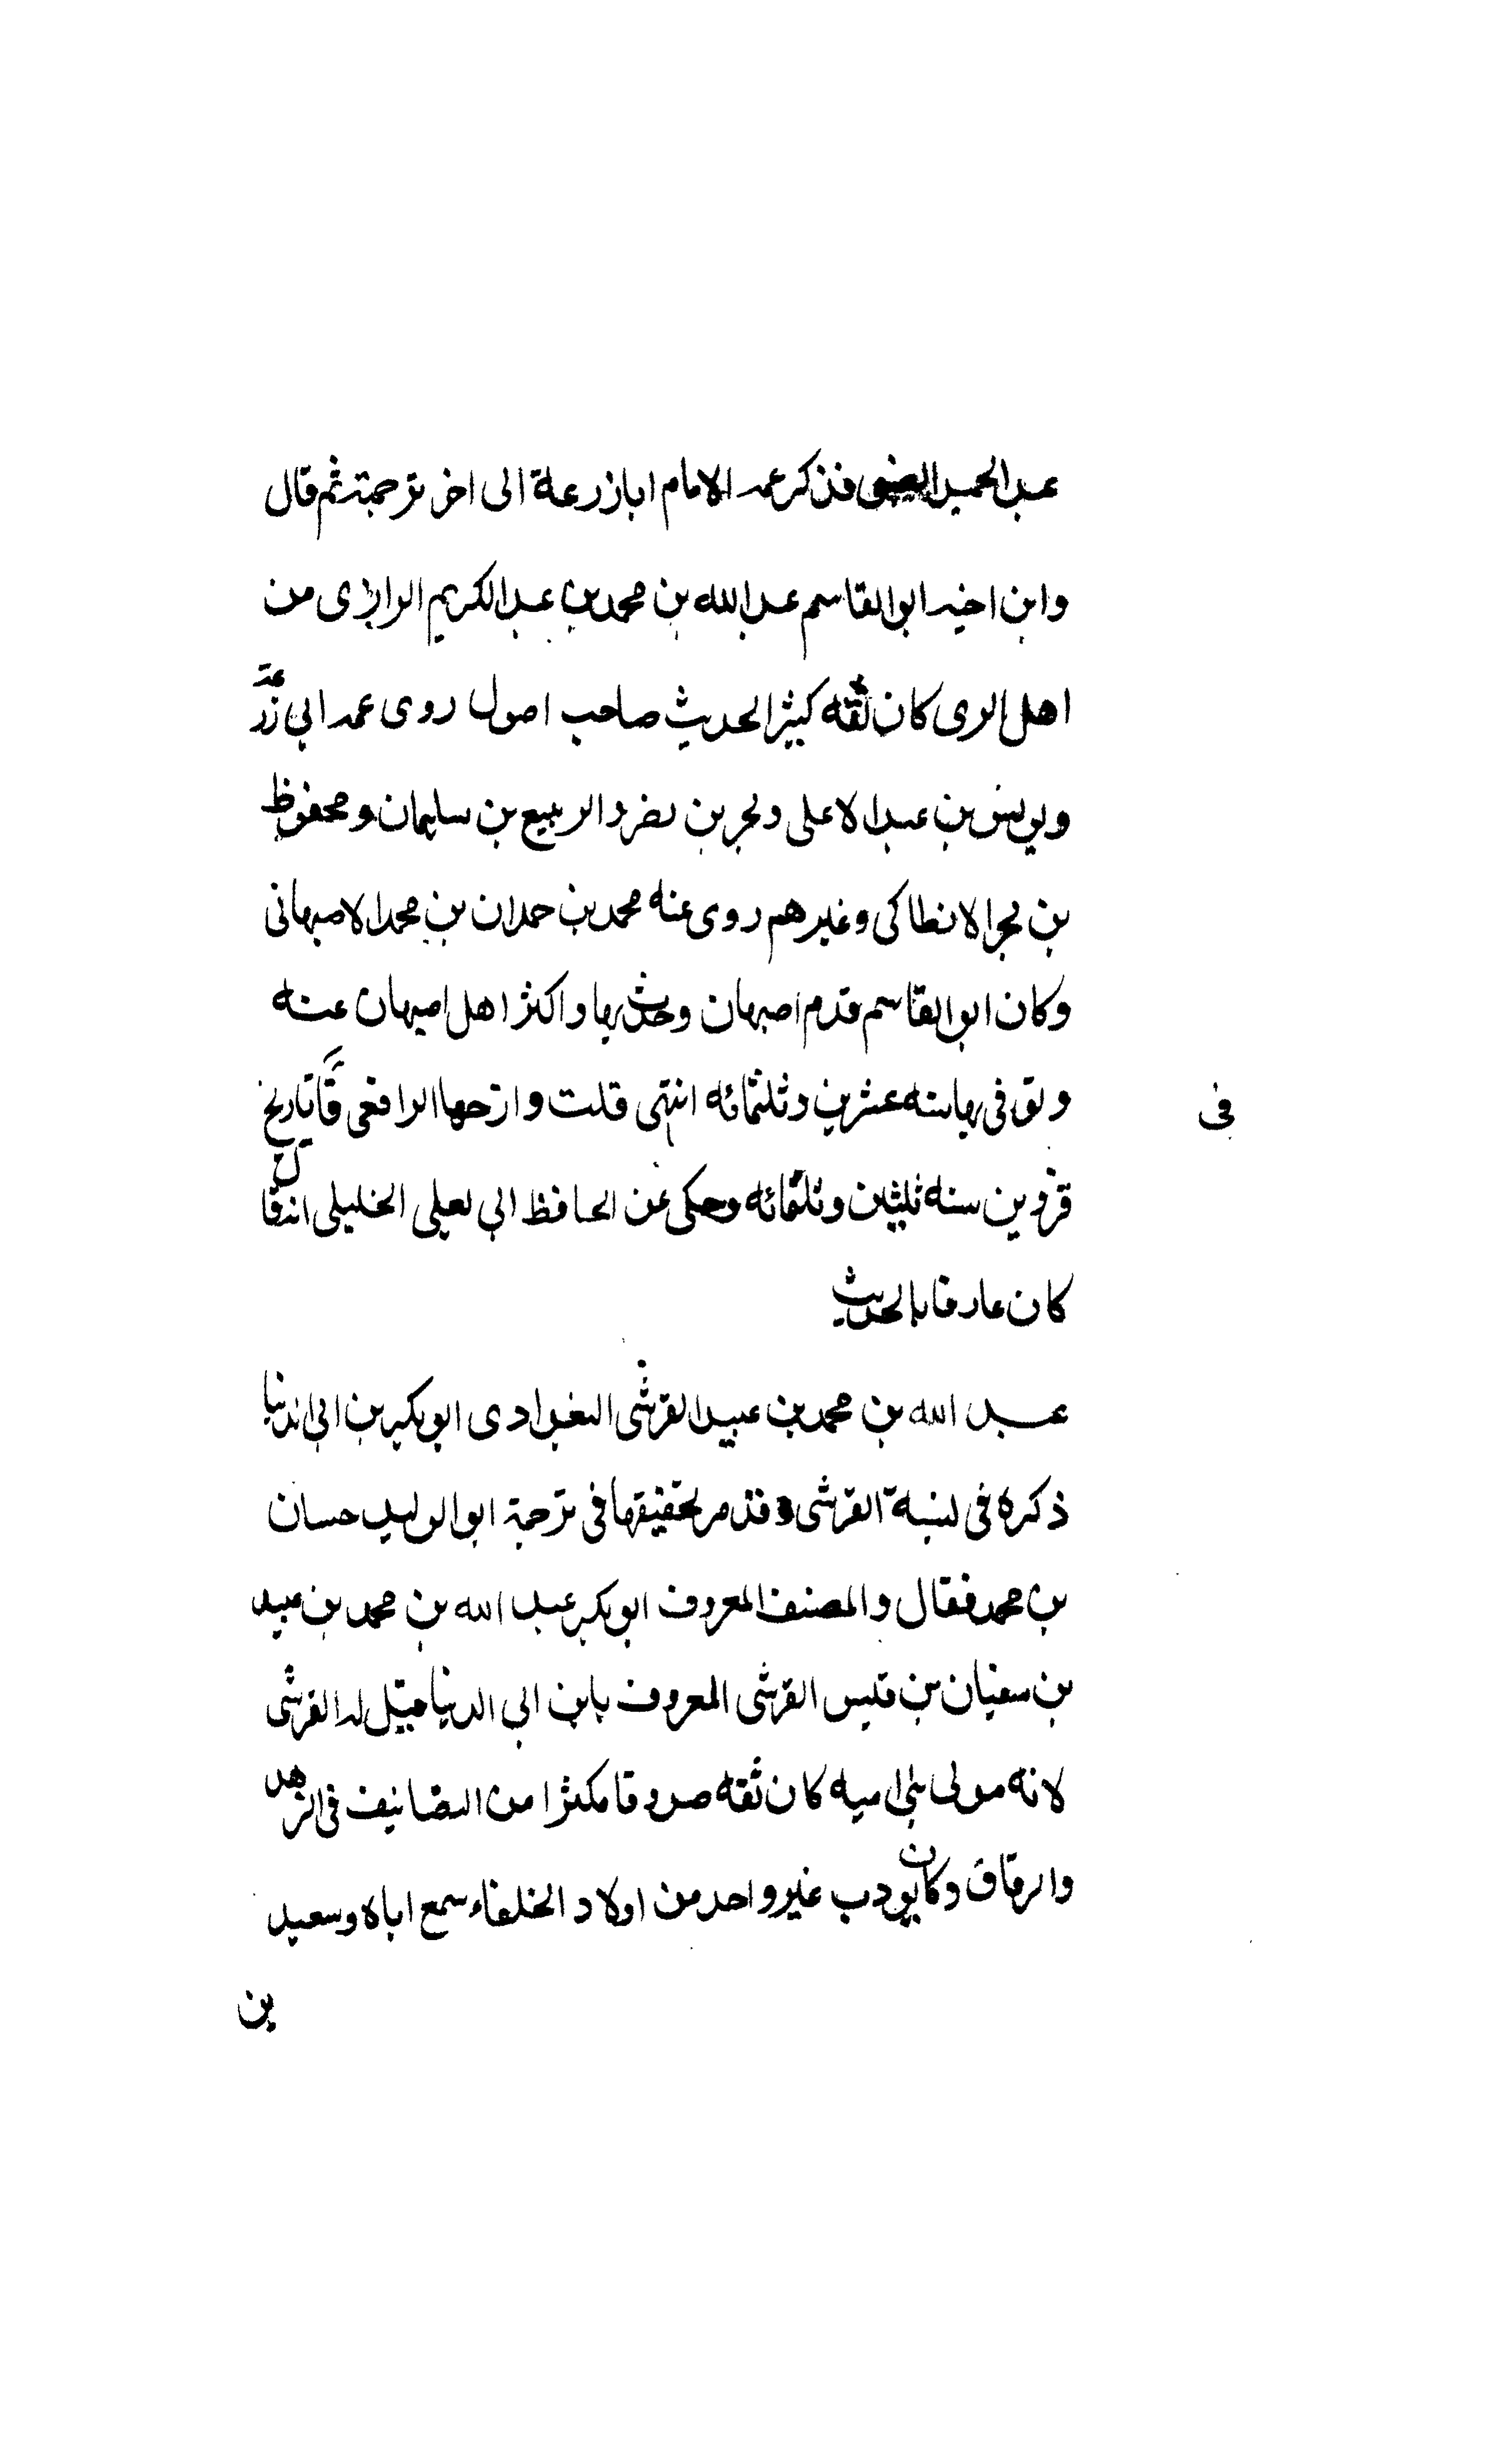 عبد الحميد فذكر عمه الامام ابا زرعة الى اخر ترجمته ثم قال
وابن اخيه ابو القاسم عبد الله بن محمد بن عبد الكريم الرازى من
اهل الرى كان ثقه كثير الحديث صاحب اصول روى عمه ابي زرعة
ويونس بن عبد الاعلى وبحر بن نصر والربيع بن سليمان ومحفوظ
بن بحر الانطاكى وغيرهم روى عنه محمد بن حمدان بن محمد الاصبهانى
وكان ابو القاسم قدم اصبهان وحدث بها واكثر اهل اصبهان عنه
وتوفى بها سنه عشرين وثلثمائه انتهى قلت وارخها الرافعى فى تاريخ
فى
قزوين سنه ثلثين وثلثمائه وحكى عن الحافظ ابي يعلى الخليلى انه قال
كان عارفا بالحديث
عبد الله بن محمد بن عبيد القرشى البغدادى ابو بكر بن ابى الدنيا
ذكره فى نسبة القرشى وقد مر تحقيقها فى ترجمة ابو الوليد حسان
بن محمد فقال والمصنف المعروف ابو بكر عبد الله بن محمد بن عبيد
بن سفيان بن قيس القرشى المعروف بابن ابي الدنيا قيل له القرشى
لانه مولى بنى اميه كان ثقه صدوقا مكثرا من التصانيف فى الزهد
والرقاق وكان يودب غير واحد من اولاد الخلفاء سمع اباه وسعيد
بن